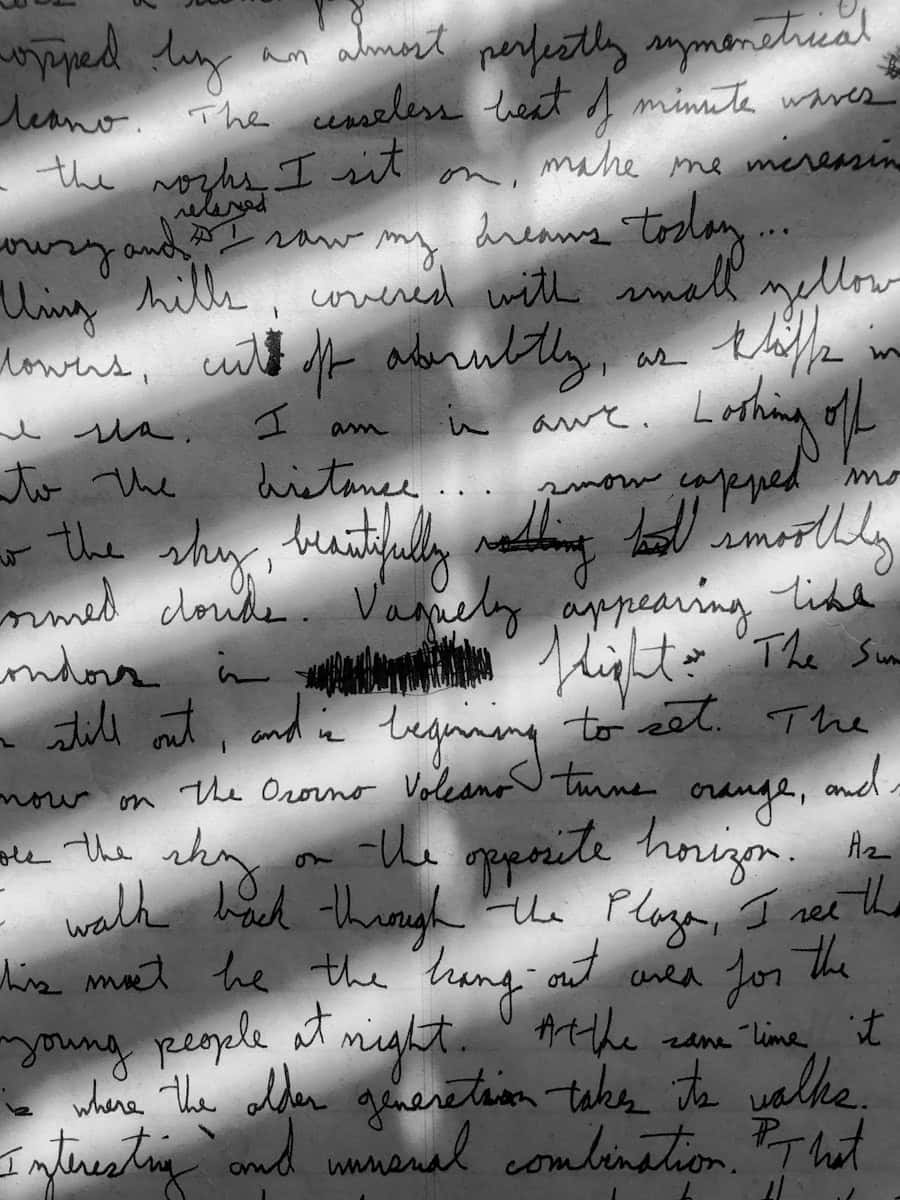 opped by an almost perfectly symmetrical
lcano. The ceaseless beat of minute waves
the rocks I sit on, make me increasin
relaxed
owsy and I saw my dreams today...
lling hills, covered with small yellow
lowers, cut off abrubtly, as kliffs in
he sea. I am in awe. Looking off
nto the distance... snow capped mo
the sky, beautifully rolling smoothly
ormed clouds. Vaguely appearing like
ondors in flight. The sun
still out, and is beginning to set. The
now on the Osorno Volcano turns orange, and
the sky on the opposite horizon. As
I walk back through the Plaza, I see tha
his must be the hang-out area for the
young people at night. At the same time it
is where the older generation takes its walks.
Interesting and unusual combination. That